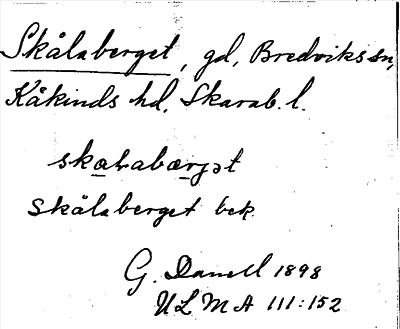 Skålaberget, gd, Bredviks sn,
Kåkinds hd, Skarab. l.
skaλabærjət
Skålaberget bek.
G. Danell 1898
ULMA 111:152